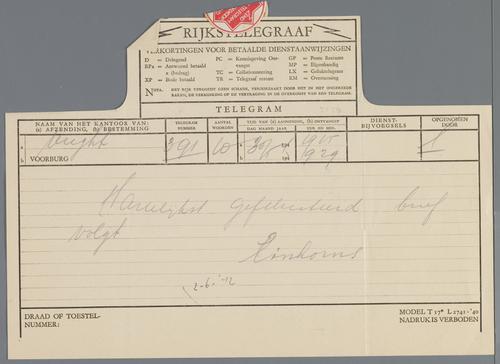 RIJKSTELEGRAAF
VERKORTINGEN VOOR BETAALDE DIENSTAANWIJZINGEN
D = Dringend PC = Kennisgeving Ontvangst GP = Poste Restante
RPx = Antwoord betaald MP = Eigenhandig
x (bedrag) TC = Collationneering LX = Gelukstelegram
XP = Bode betaald TR = Telegraaf restant KM = Overseining
NOTA. HET RIJK VERGOEDT GEEN SCHADE, VEROORZAAKT DOOR HET IN HET ONGEREEDE
RAKEN, DE VERMINKING OF DE VERTRAGING IN DE OVERKOMST VAN EEN TELEGRAM.
TELEGRAM
NAAM VAN HET KANTOOR VAN: (a) AFZENDING, (b) BESTEMMING
TELEGRAM NUMMER
AANTAL WOORDEN
TIJD VAN (a) AANNEMING, (b) ONTVANGST
DAG MAAND JAAR UUR EN MIN.
DIENST-BIJVOEGSELS
OPGENOMEN DOOR
a
b VOORBURG
391 10 a 30/5 194 1915
b 194 1929
1
Hartelijkst gefeliciteerd brief
volgt
Einhorns
2-6-'42
DRAAD OF TOESTEL-
NUMMER:
MODEL T 37* L 2741-'40
NADRUK IS VERBODEN